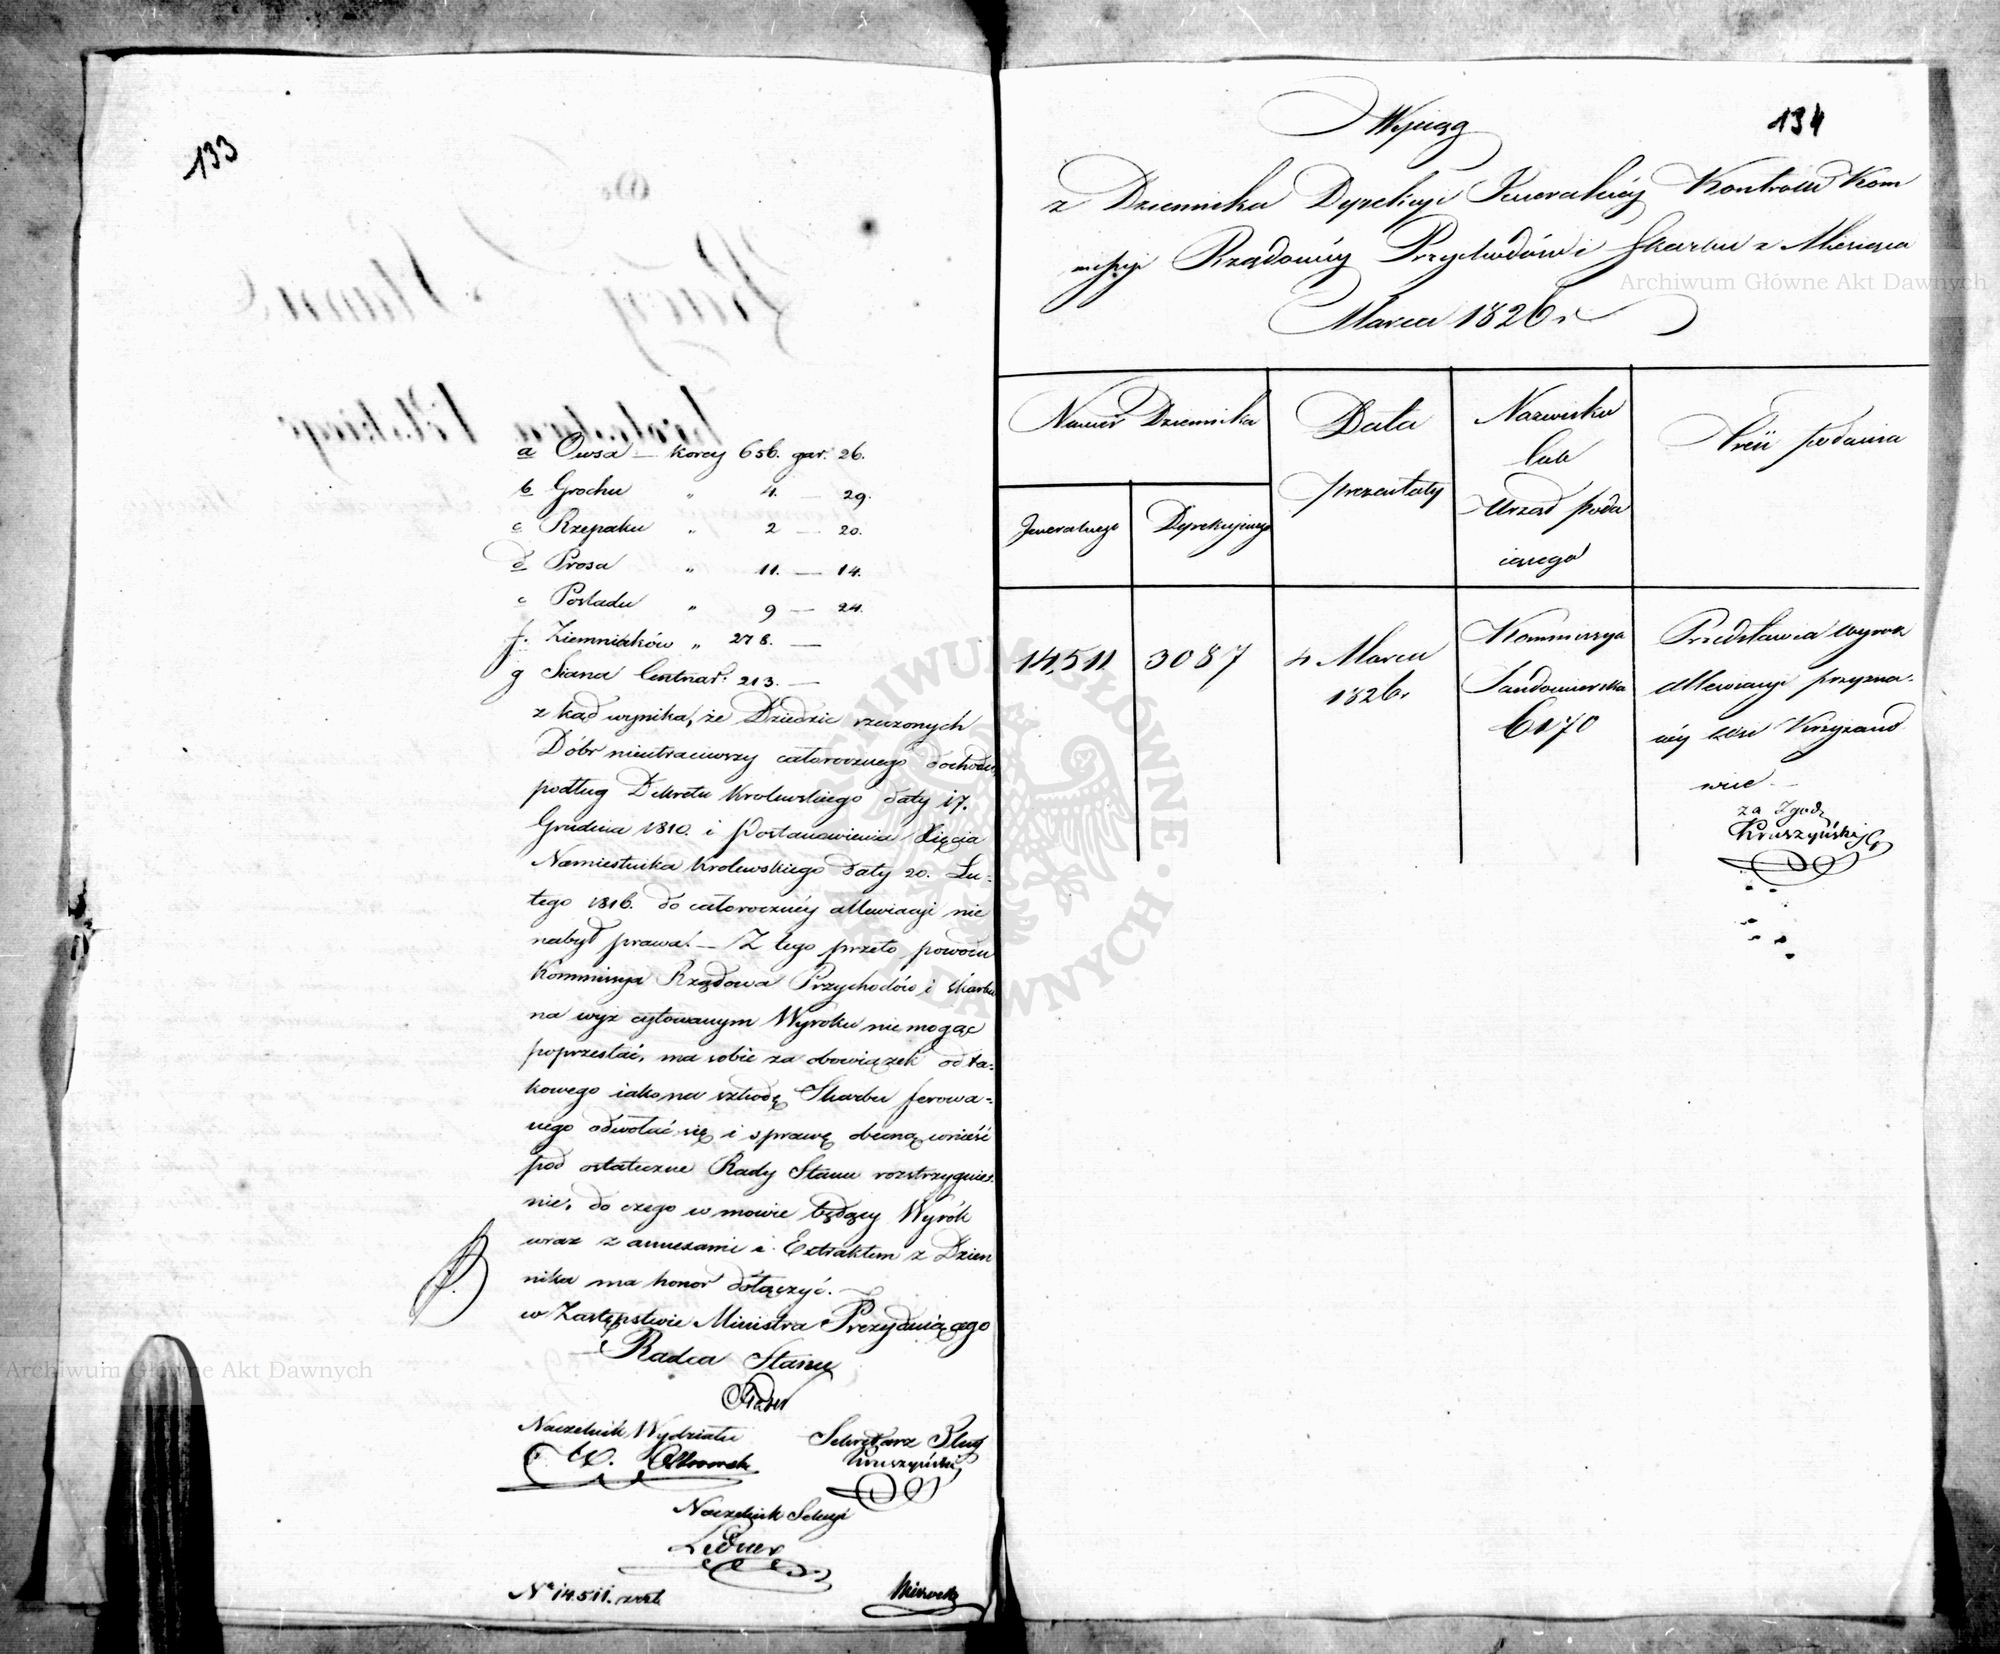 133
a Owsa — korcy 656. gar: 26.
b Grochu " 4. — 29.
c Rzepaku " 2 — 20.
d Prosa " 11. — 14.
e Pośladu " 9 — 24.
f. Ziemniaków " 278. —
g Siana Centnar: 213. —
z kąd wynika, że Dziedzic rzeczonych
Dóbr nieutraciwszy całorocznego dochodu,
podług Dekretu Krolewskiego daty 17.
Grudnia 1810. i Postanowienia Xięcia
Namiestnika Krolewskiego daty 20. Lu-
tego 1816. do całoroczney allewiacyi nie
nabył prawa. — Z tego przeto powodu
Kommissya Rządowa Przychodów i Skarbu
na wyż cytowanym Wyroku nie mogąc
poprzestać, ma sobie za obowiązek od ta-
kowego iako na szkodę Skarbu ferowa-
nego odwołać się i sprawę obecną wnieść
pod ostateczne Rady Stanu rozstrzygnie-
nie, do czego w mowie będący Wyrok
wraz z annexami i Extraktem z Dzien
nika ma honor dołączyć.
w Zastępstwie Ministra Prezyduiącego
Radca Stanu
Naczelnik Wydziału Sekretarz Dług
Kruszyński
Naczelnik Sekcyi
Ledner
No 14511.
134
Wyciąg
z Dziennika Dyrekcyi Jeneralnéy Kontroli Kom
missyi Rządowéy Przychodów i Skarbu z Miesiąca
Marca 1826 r
Numer Dziennika
Jeneralnego
Dyrekcyinego
Data
prezentaty
Nazwisko
lub
Urząd poda
iącego
Treść podania
14,511
3087
4 Marca
1826r
Kommissya
Sandomierska
6170
Przedstawia wyrok
allewiacyi przyzna-
néy wsi Krzyżano
wice —
za Zgod
Kruszyński
Archiwum Główne Akt Dawnych
Archiwum Główne Akt Dawnych
ARCHIWUM GŁÓWNE AKT DAWNYCH